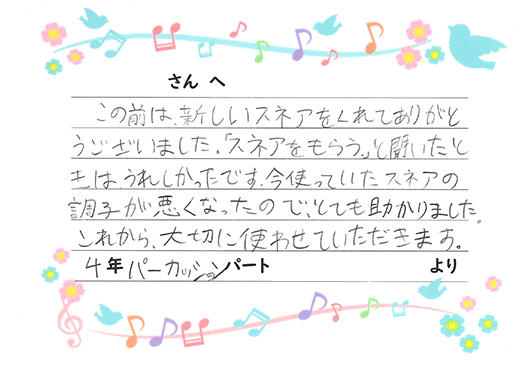 さん へ
この前は、新しいスネアをくれてありがと
うございました。「スネアをもらう。」と聞いたと
きは、うれしかったです。今使っていたスネアの
調子が悪くなったので、とても助かりました。
これから、大切に使わせていただきます。
4年 パーカッションパート より